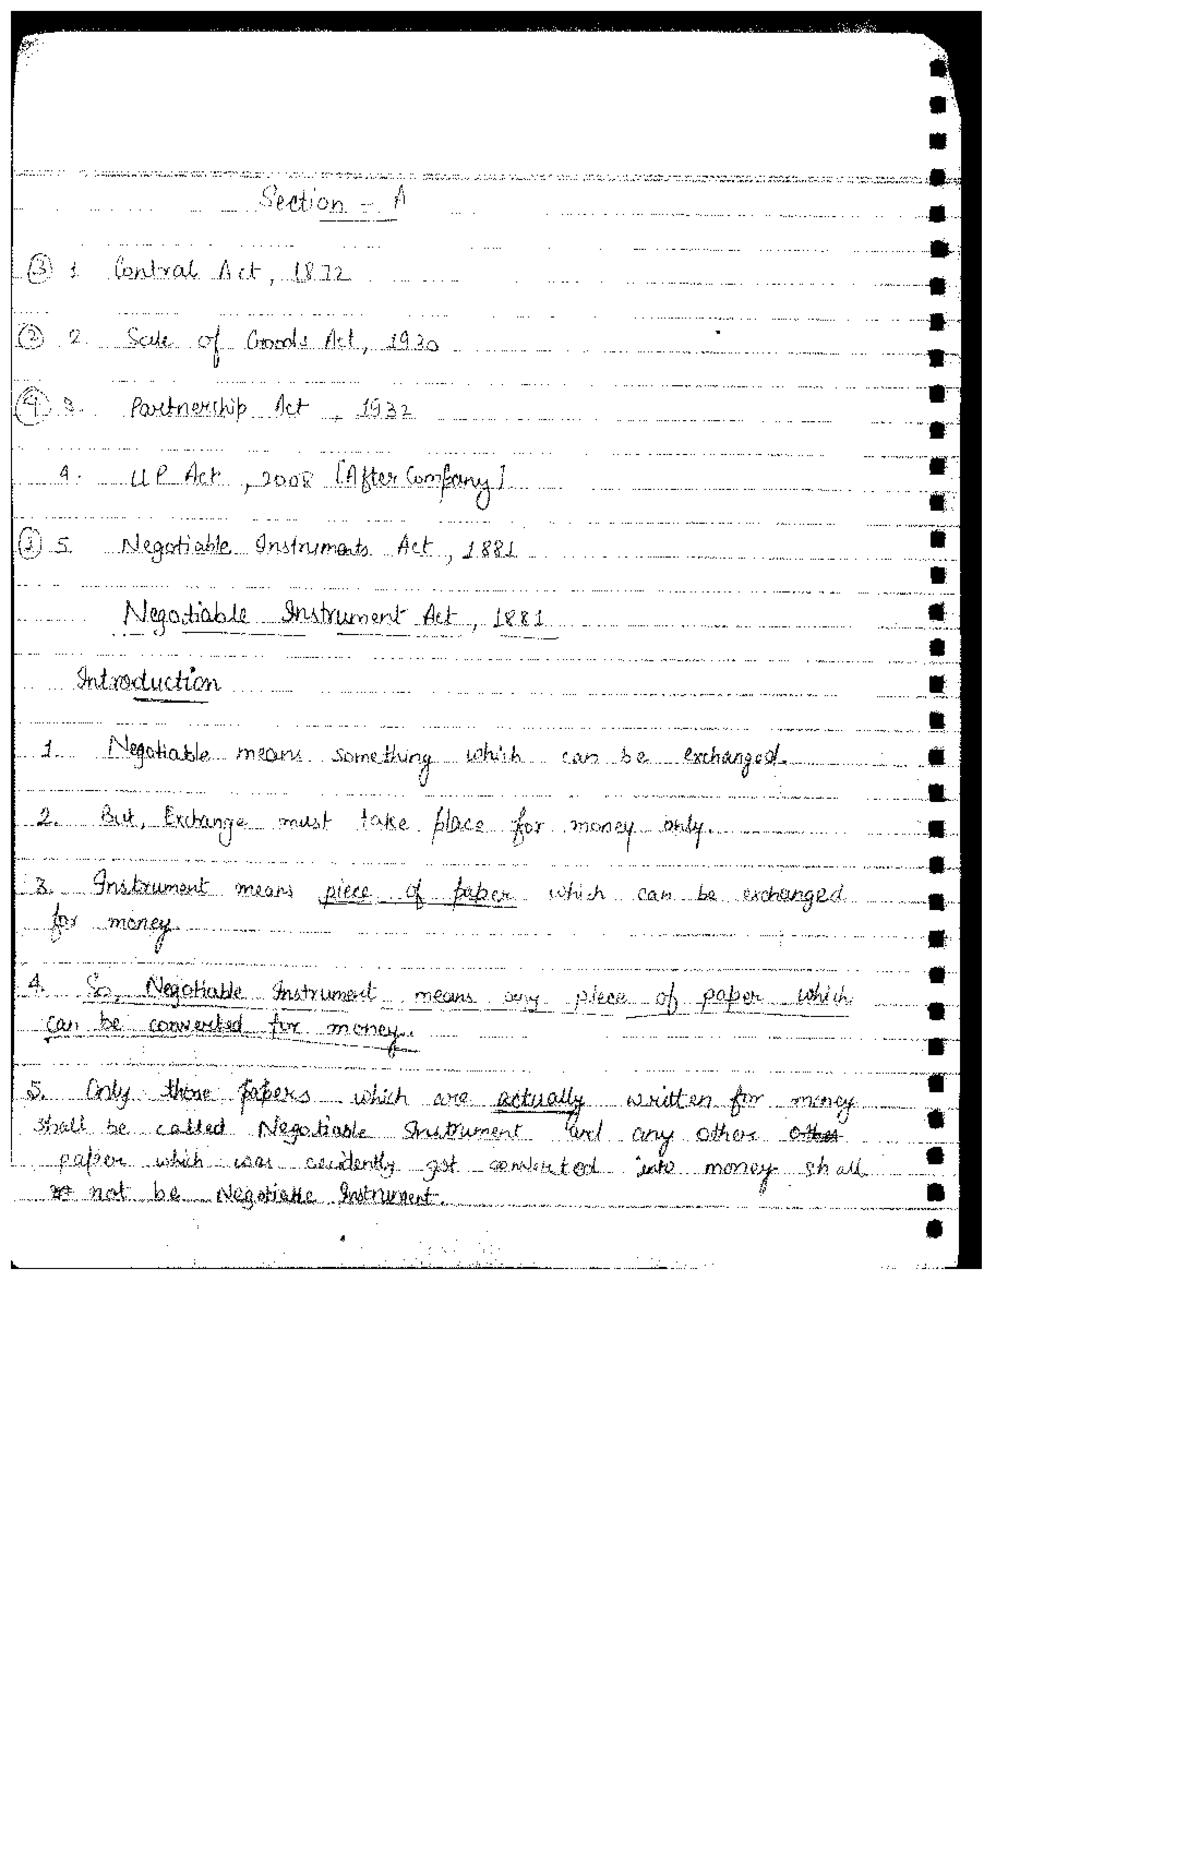 Section - A
③ 1 Contral Act, 1872
② 2. Sale of Goods Act, 1930
④ 3. Partnership Act, 1932
4. LLP Act, 2008 [After Company]
5. Negotiable Instruments Act, 1881
Negotiable Instrument Act, 1881
Introduction
1. Negotiable means something which can be exchanged.
2. But, Exchange must take place for money only.
3. Instrument means piece of paper which can be exchanged
for money.
4. So, Negotiable Instrument means any piece of paper which
can be converted for money.
5. Only those papers which are actually written for money
shall be called Negotiable Instrument and any other other
paper which was accidently got converted into money shall
not be Negotiable Instrument.